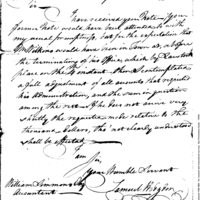 Sir
I have received your Note. Your
former Note would have been attended to with
my usual promptness, but for the expectation that
Mr Williams would have been in Town at, or before
the termination of his office, which by Law took
place on the President then I contemplated
a full adjustment of all accounts that respected
his administration, and the sum in question
among the rest. If he does not arrive very
shortly the requisite order relative to the
thousand dollars, tho not clearly understood
shall be effected.
I am
Sir,
Your Humble Servant
Samuel Hodgdon
William Simmons Esqr
Accountant